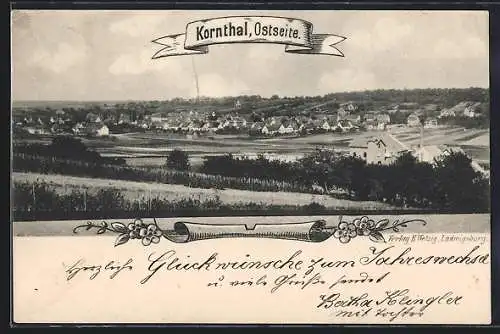 Kornthal, Ostseite.
Verlag H. Fetzig, Ludwigsburg.
Herzliche Glückwünsche zum Jahreswechsel
u. viele Grüße sendet
Klingler
mit Tochter